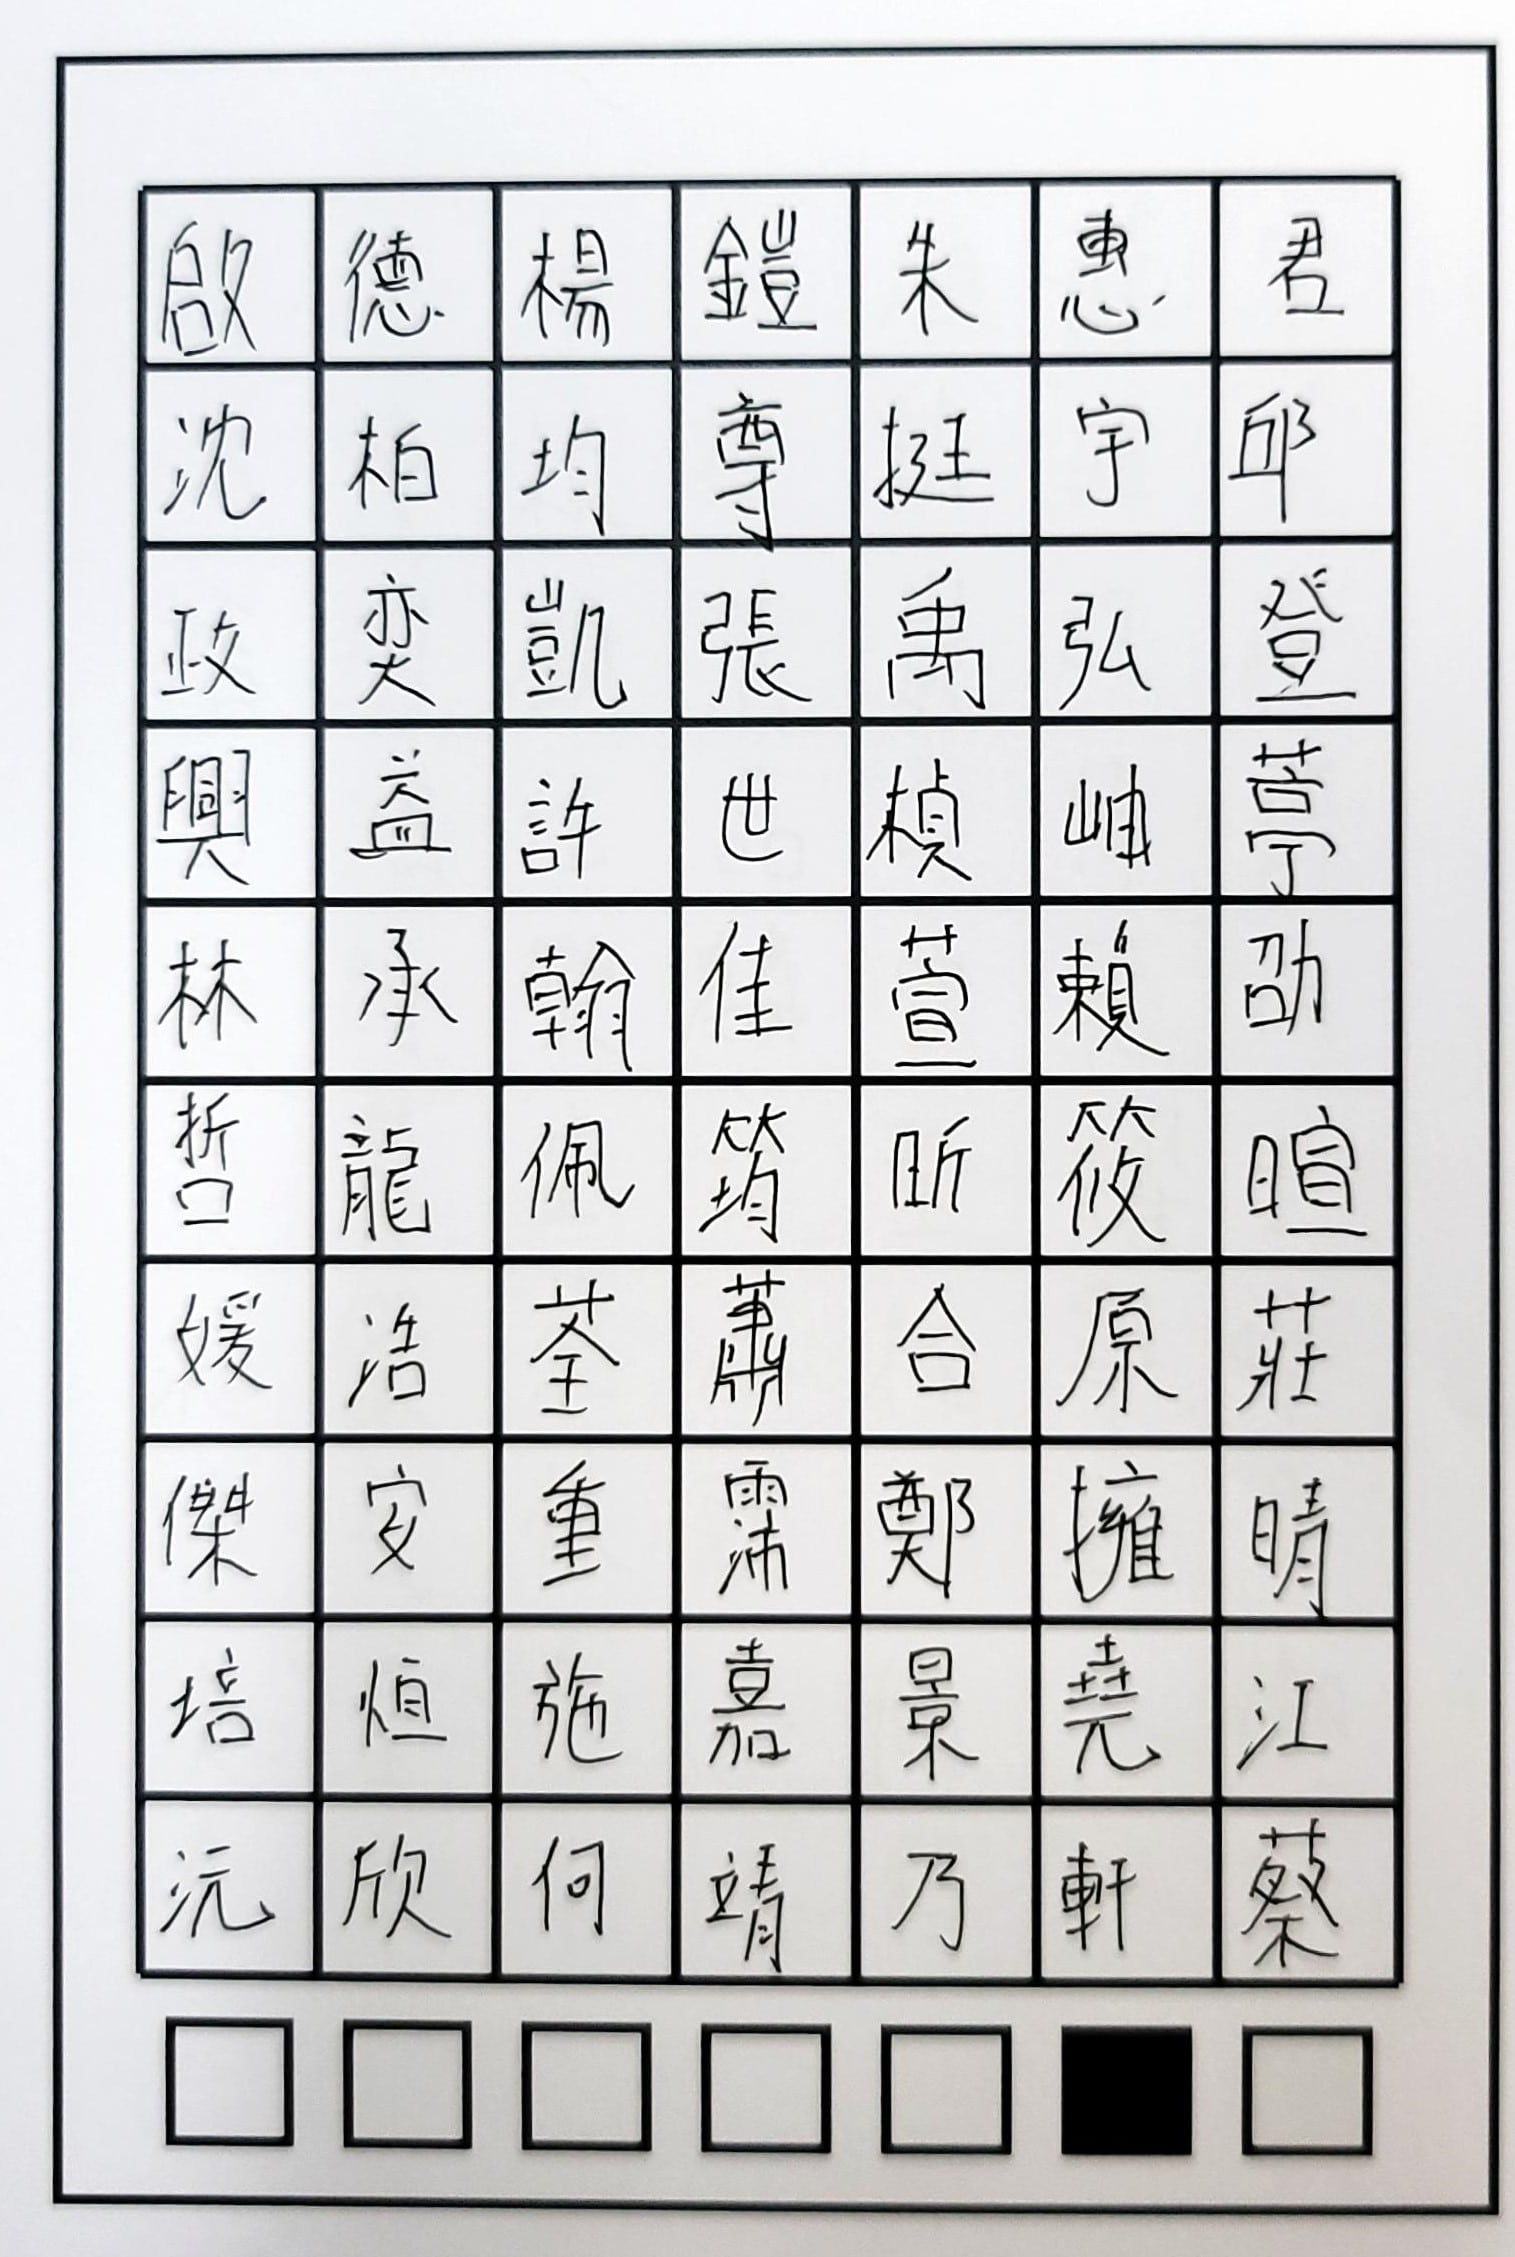 啟德楊鎧朱惠君
沈柏均尊挺宇邱
政奕凱張禹弘登
興益許世楨岫葶
林承翰佳萱賴劭
哲龍佩筠昕筱暄
媛浩荃蕭合原莊
傑安重霈鄭擁晴
培烜施嘉景堯江
沅欣何靖乃軒蔡